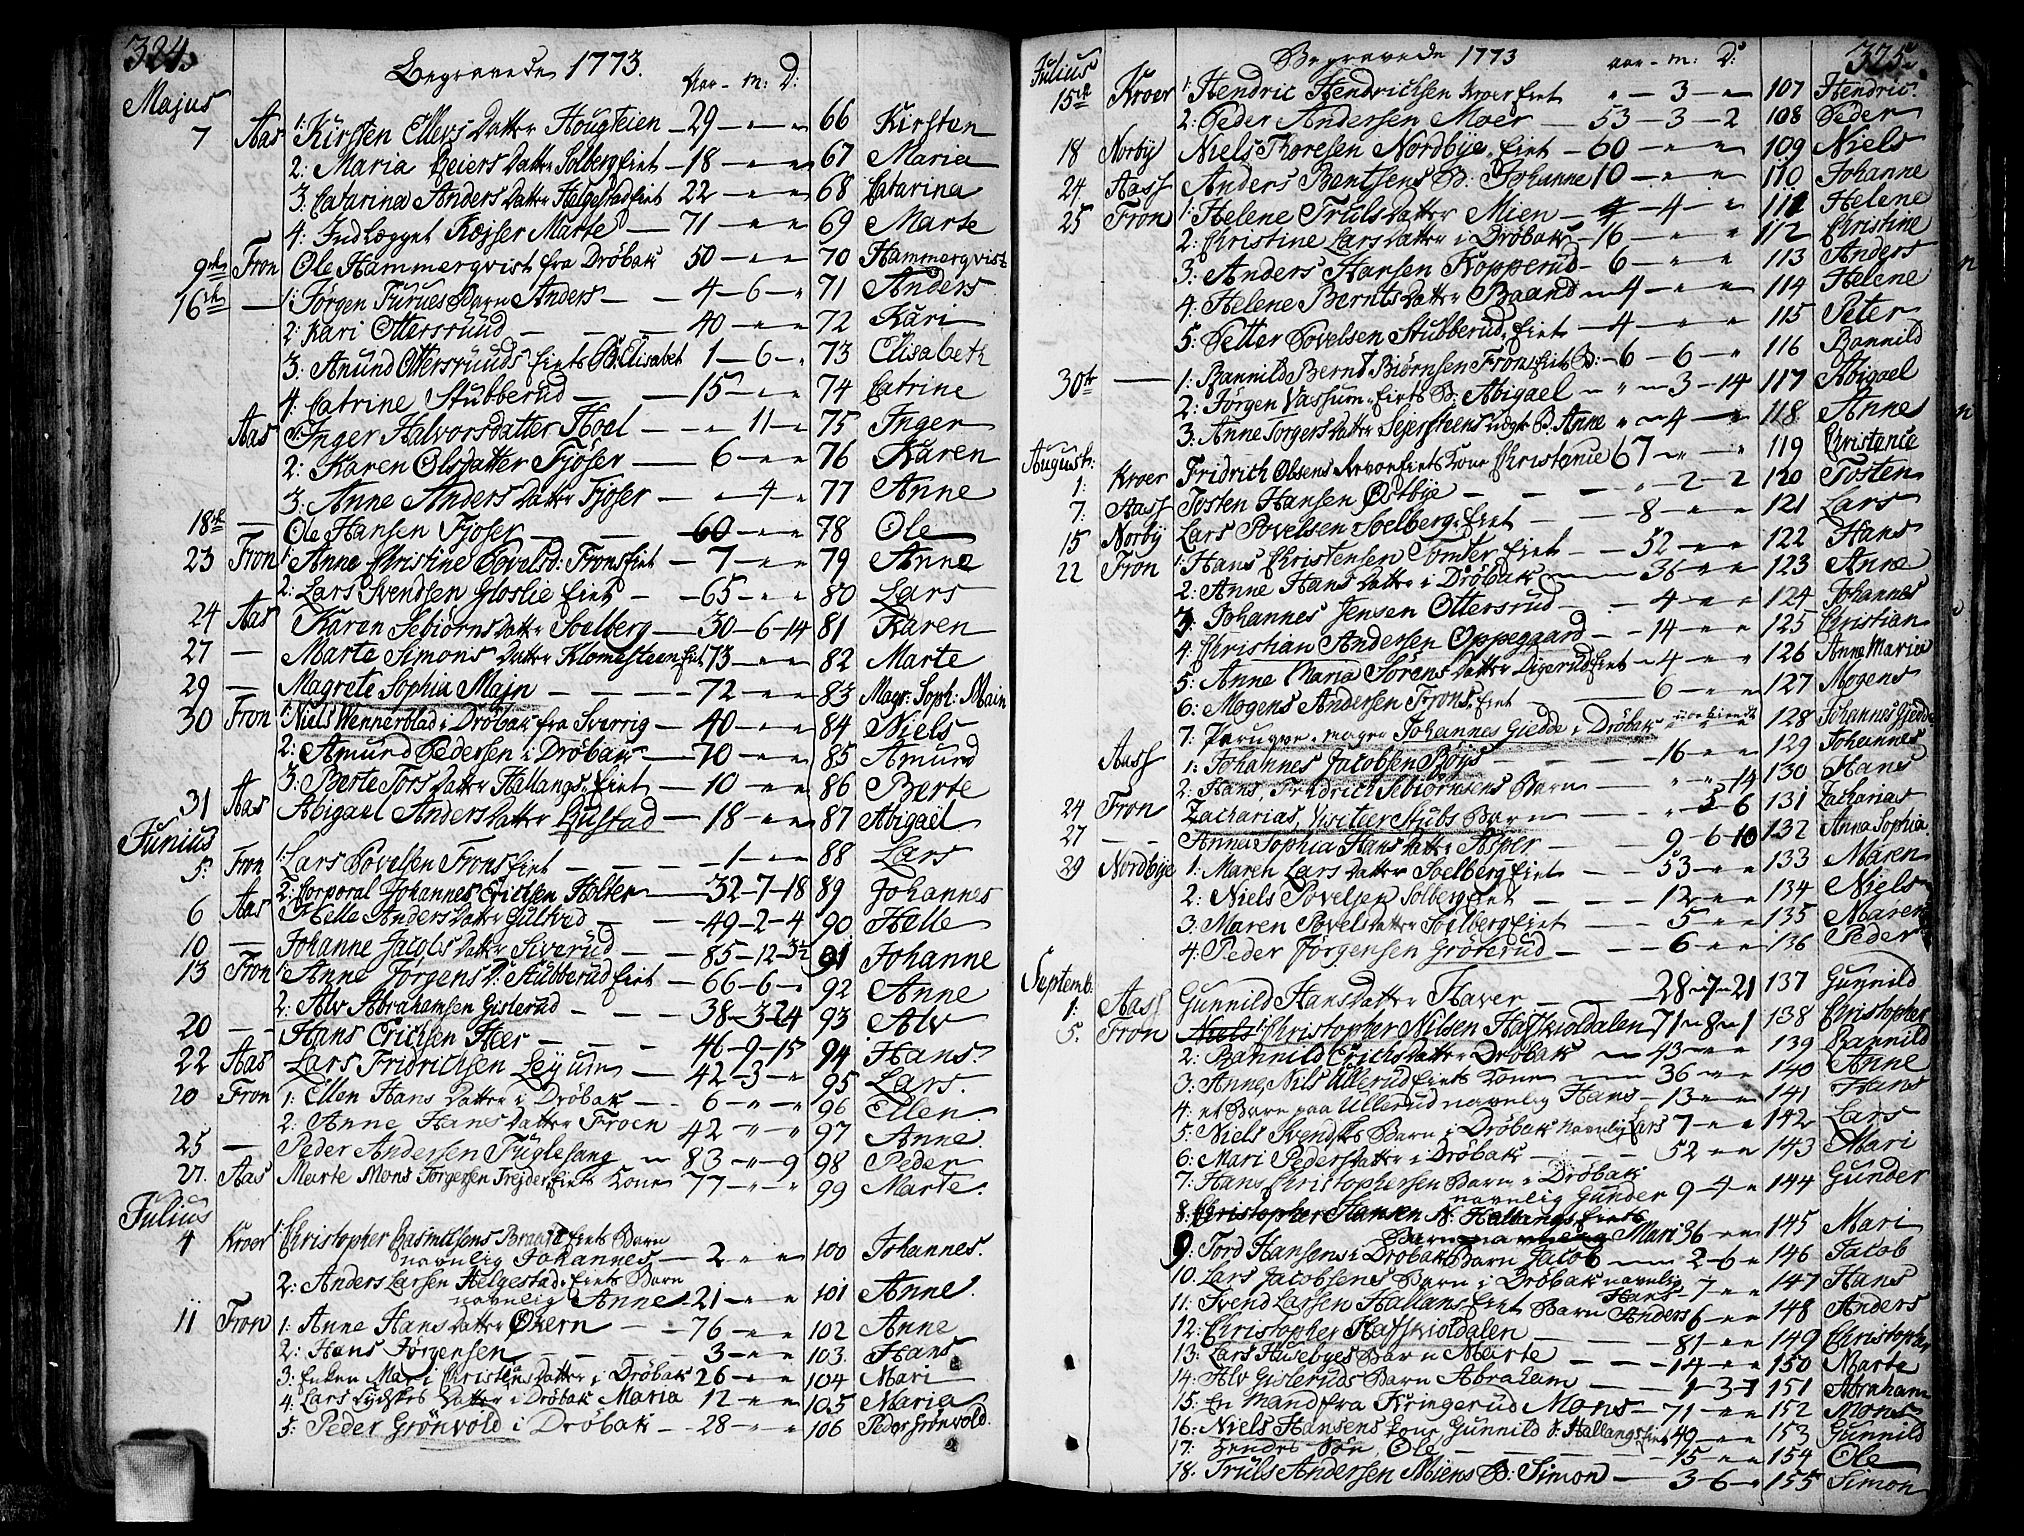 324.
Begravede 1773.
Aar - M: D:
Majus
7 Aas 1: Kirsten Ellevs Datter Hougteien - 29 - " - " 66 Kirsten
2: Maria Peiers Datter Solberg Eiet - 18 - " - " 67 Maria
3: Catarina Anders Datter Helgestad Eiet 22 - " - " 68 Catarina
4: Indlægget Kejser Marte - 71 - " - " 69 Marte
9de Fron Ole Hammerqvist fra Drøbak 50 - " - " 70 Hammerqvist
16de - 1: Jørgen Furues Barn Anders - - 4 - 6 - " 71 Anders
2: Kari Ottersruud - - - 40 - " - " 72 Kari
3: Anund Ottersruuds Eiets B: Elisabet 1 - 6 - " 73 Elisabeth
4: Catrine Stubberud - - 15 - " - " 74 Catrine
Aas 1: Inger Halvorsdatter Hoel - - " - 11 - " 75 Inger
2: Karen Olsdatter Fjøser - 6 - " - " 76 Karen
3: Anne Anders Datter Fjøser - " - 4 - " 77 Anne
18de - Ole Hansen Fjoser - - 60 - " - " 78 Ole
23 Fron 1: Anne Christine Povelsd: Frons Eiet - 7 - " - " 79 Anne
2: Lars Svendsen Gloslie Eiet - - 65 - " - " 80 Lars
24 Aas Karen Sebiørns Datter Soelberg - 30 - 6 - 14 81 Karen
27 - Marte Simons Datter Klomesteen Eiet 73 - " - " 82 Marte
29 - Magrete Sophia Majn - - - 72 - " - " 83 Magr: Soph: Main
30 Fron 1: Niels Wennerblad i Drøbak fra Sverrig - 40 - " - " 84 Niels
2: Amund Pedersen i Drøbak - 70 - " - " 85 Amund
3: Berte Tors Datter Hallangs Eiet - 10 - " - " 86 Berte
31 Aas Abigael Anders Datter Gustad - 18 - " - " 87 Abigaël
Junius
5: Fron 1: Lars Povelsen Frons Eiet - - 1 - " - " 88 Lars
2: Corporal Johannes Erichsen Holter - 32 - 7 - 18 89 Johannes
6 Aas Helle Anders Datter Gultvid - - 49 - 2 - 4 90 Helle
10 - Johanne Jacobs Datter Siverud - 85 - 12 - 3½ 91 Johanne
13 Fron 1: Anne Jørgens D: Stubberud Eiet - 66 - 6 - " 92 Anne
2: Alv Abrahamsen Gislerud - - - 38 - 3 - 24 93 Alv
20 - - Hans Erichsen Heer - - - 46 - 9 - 15 94 Hans.
22 Aas Lars Fridrichsen Lyum - - 42 - 3 - " 95 Lars.
20 Fron 1: Ellen Hans Datter i Drøbak - - 6 - " - " 96 Ellen
2: Anne Hans Datter Froen 42 - " - " 97 Anne
25 - Peder Andersen Fuglesang - 83 - " - 9 98 Peder
27. Aas Marte Mons Jørgensen Trejder Eiet Kone - 77 - " - " 99 Marte.
Julius
4 Kroer 1: Christopher Rasmusens Braate Eiet Barn
navnlig Johannes - 2 - " - " 100 Johannes.
2: Anders Larsen Helgestad Eiet Barn
navnlig Anne - 21 - " - " 101 Anne
11 Fron 1: Anne Hans Datter Økern - - 76 - " - " 102 Anne
2: Hans Jørgensen - - - - 3 - " - " 103. Hans
3: Enken Mari Christens Datter i Drøbak 26 - " - " 104 Mari
4: Lars Tydskes Datter i Drøbak Maria 12 - " - " 105 Maria
5: Peder Grönvold i Drøbak - 28 - " - " 106 Peder Grønvold.
325.
Begravede 1773
aar - m: D:
Julius
15de Kroer 1: Hendric Hendrichsen Kroer Eiet " - 3 - " 107 Hendric
2: Peder Andersen Moer - 53 - 3 - 2 108 Peder
18 Norby Niels Thoresen Nordbye Eiet - 60 - " - " 109 Niels
24 Aass Anders Bentsens B: Johanne 10 - " - " 110 Johanne
25 Fron 1: Helene Truls Datter Mien - 4 - 4 - " 111 Helene
2: Christine Lars Datter i Drøbak - 16 - " - " 112 Christine
3: Anders Hansen Kopperud - 6 - " - " 113 Anders
4: Helene Bernts Datter Baand - 4 - " - " 114 Helene
5: Petter Povelsen Stubberud Eiet - 4 - " - " 115 Peter
30te - 1: Rannild Bernt Biørnsen Frons Eiet B: - 6 - 6 - " 116 Rannild
2: Jørgen Vassum Eiets B: Abigael - " - 3 - 14 117 Abigael
3: Anne Torgers Datter Sejersteens B: Anne " - 4 - " 118 Anne
August:
1: Kroer Fridrich Olsens Kroer Eiets Kone Christence 67 - " - " 119 Christence
7: Aass Tosten Hansen Østbye - - " - 2 - 2 120 Tosten
15 Norby Lars Povelsen Soelberg Eiet - - 8 - " - " 121 Lars
22 Fron 1: Hans Christensen Tomter Eiet - - 52 - " - " 122 Hans
2: Anne Hans Datter i Drøbak - 36 - " - " 123 Anne
3: Johannes Jensen Ottersrud - - 4 - " - " 124 Johannes
4: Christian Andersen Oppegaard - - 14 - " - " 125 Christian
5: Anne Maria Sørens Datter Digerud Eiet - 4 - " - " 126 Anne Maria
6: Mogens Andersen Frons Eiet - - 6 - " - " 127 Mogens
7: Peruqve-mager Johannes Giedde i Drøbak 128 Johannes Giedde
Aass 1: Johannes Jacobsen Røys - - 16 - " - " 129 Johannes
2: Hans, Fridrich Sebiørnsens Barn - " - " - 14 130 Hans
24 Fron Zacharias, Visiteer Stubs Barn - " - 5 - 6 131 Zacharias
27 - - Anna Sophia Hans Datter Asper - 9 - 6 - 10 132 Anna Sophia
29 Nordbye 1: Maren Lars Datter Soelberg Eiet - 53 - " - " 133 Maren
2: Niels Povelsen Solberg Eiet - - 12 - " - " 134 Niels
3: Maren Povels Datter Soelberg Eiet - 5 - " - " 135 Maren
4: Peder Jørgensen Gröterud - - 6 - " - " 136 Peder
Septemb.
1: Aass Gunnild Hans Datter Haver - - 28 - 7 - 21 137 Gunnild
5. Fron Niels 1: Christopher Nilsen Haffskioldalen 71 - 8 - 1 138 Christopher
2: Rannild Erichs Datter Drøbak - 43 - " - " 139 Rannild
3: Anne, Nils Ullerud Eiets Kone - 36 - " - " 140 Anne
4: et Barn paa Ullerud navnlig Hans - 13 - " - " 141 Hans
5: Niels Svendskes Barn i Drøbak navnlig Lars 7 - " - " 142 Lars
6: Mari Peders Datter i Drøbak - - 52 - " - " 143 Mari
7: Hans Christophersen Barn i Drøbak
navnlig Gunder 9 - 4 - " 144 Gunder
8: Christopher Hansen N: Hallangs Eiets
Barn navnlig Mari 36 - " - " 145 Mari
9 Tord Hansens i Drøbak Barn Jacob - 2 - 6 - " 146 Jacob
10. Lars Jacobsens Barn i Drøbak navnlig
Hans - 7 - " 147 Hans
11: Svend Larsen Hallans Eiet Barn Anders 6 - " - " 148 Anders
12: Christopher Haffskioldalen - - 81 - " - " 149 Christopher
13: Lars Husebyes Barn Marte - - 14 - " - " 150 Marte
14: Alv Gisleruds Barn Abraham - - 1 - 3 - 1 151 Abraham
15: En Mand fra Kringerud Mons - 71 - " - " 152 Mons
16: Niels Hansens Kone Gunnild N: Hallangs Eiet 49 - " - " 153 Gunnild
17: Hendes Søn Ole - - - 15 - " - " 154 Ole
18. Truls Andersen Miens B: Simon - 3 - 6 - " 155 Simon